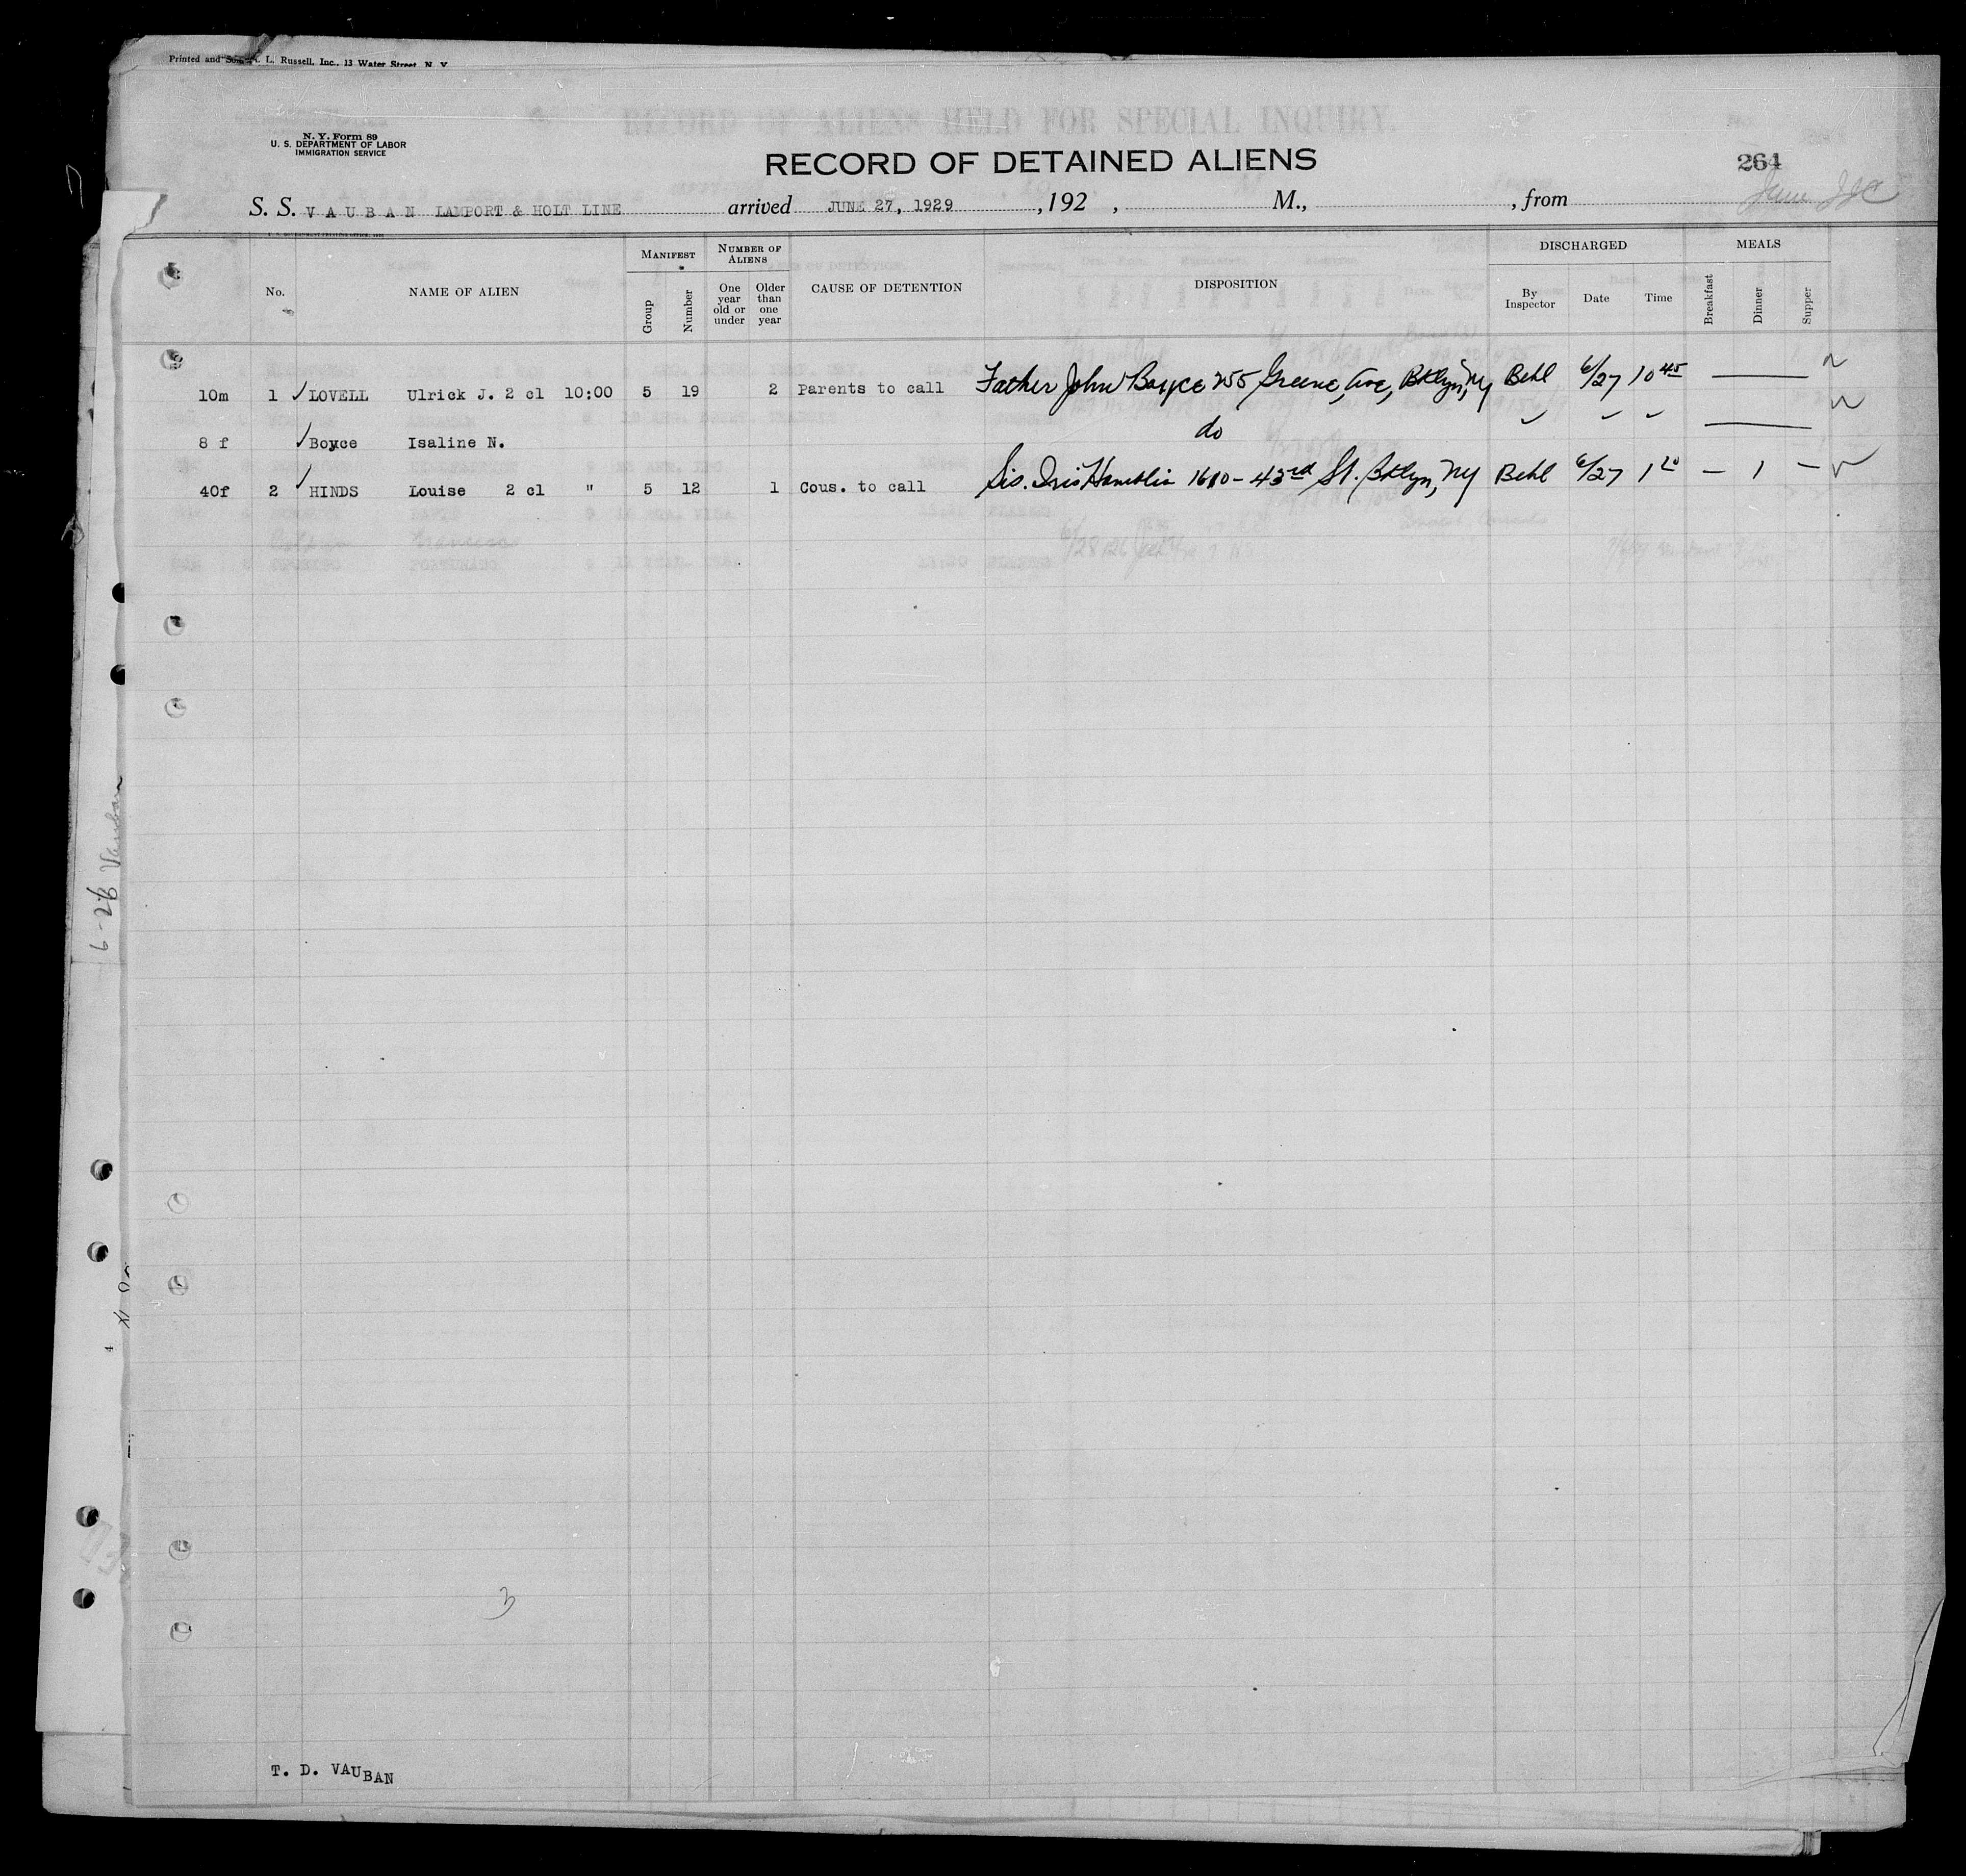 Printed and L. Russell, Inc., 13 Water Street, N. Y.
N. Y. Form 89
U. S. DEPARTMENT OF LABOR
IMMIGRATION SERVICE
RECORD OF ALIENS HELD FOR SPECIAL INQUIRY.
RECORD OF DETAINED ALIENS
264
S. S. VAUBAN LAMPORT & HOLT LINE arrived JUNE 27, 1929 , 192 , M., , from
No. NAME OF ALIEN MANIFEST Group Number NUMBER OF ALIENS One year old or under Older than one year CAUSE OF DETENTION DISPOSITION DISCHARGED By Inspector Date Time MEALS Breakfast Dinner Supper
10m 1 ✓ LOVELL Ulrick J. 2 cl 10:00 5 19 2 Parents to call Father John Boyce 255 Greene, Ave, Bklyn, NY Behl 6/27 10 45 —
8 f ✓ Boyce Isaline N. do ✓ ✓ ✓ —
40f 2 ✓ HINDS Louise 2 cl " 5 12 1 Cous. to call Sis. Iris Hamblin 1680 - 43rd St. Bklyn, NY Behl 6/27 1 20 — 1 — ✓
6-28 Vauban
3
T. D. VAUBAN